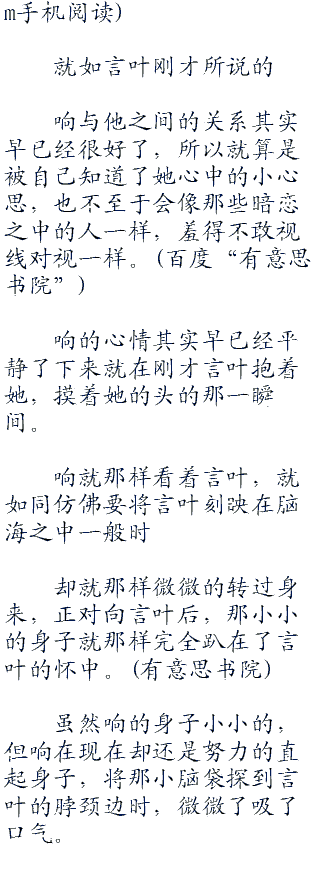 m手机阅读)
就如言叶刚才所说的
响与他之间的关系其实
早已经很好了，所以就算是
被自己知道了她心中的小心
思，也不至于会像那些暗恋
之中的人一样，羞得不敢视
线对视一样。(百度“有意思
书院”)
响的心情其实早已经平
静了下来就在刚才言叶抱着
她，摸着她的头的那一瞬
间。
响就那样看着言叶，就
如同仿佛要将言叶刻映在脑
海之中一般时
却就那样微微的转过身
来，正对向言叶后，那小小
的身子就那样完全趴在了言
叶的怀中。(有意思书院)
虽然响的身子小小的，
但响在现在却还是努力的直
起身子，将那小脑袋探到言
叶的脖颈边时，微微了吸了
口气。